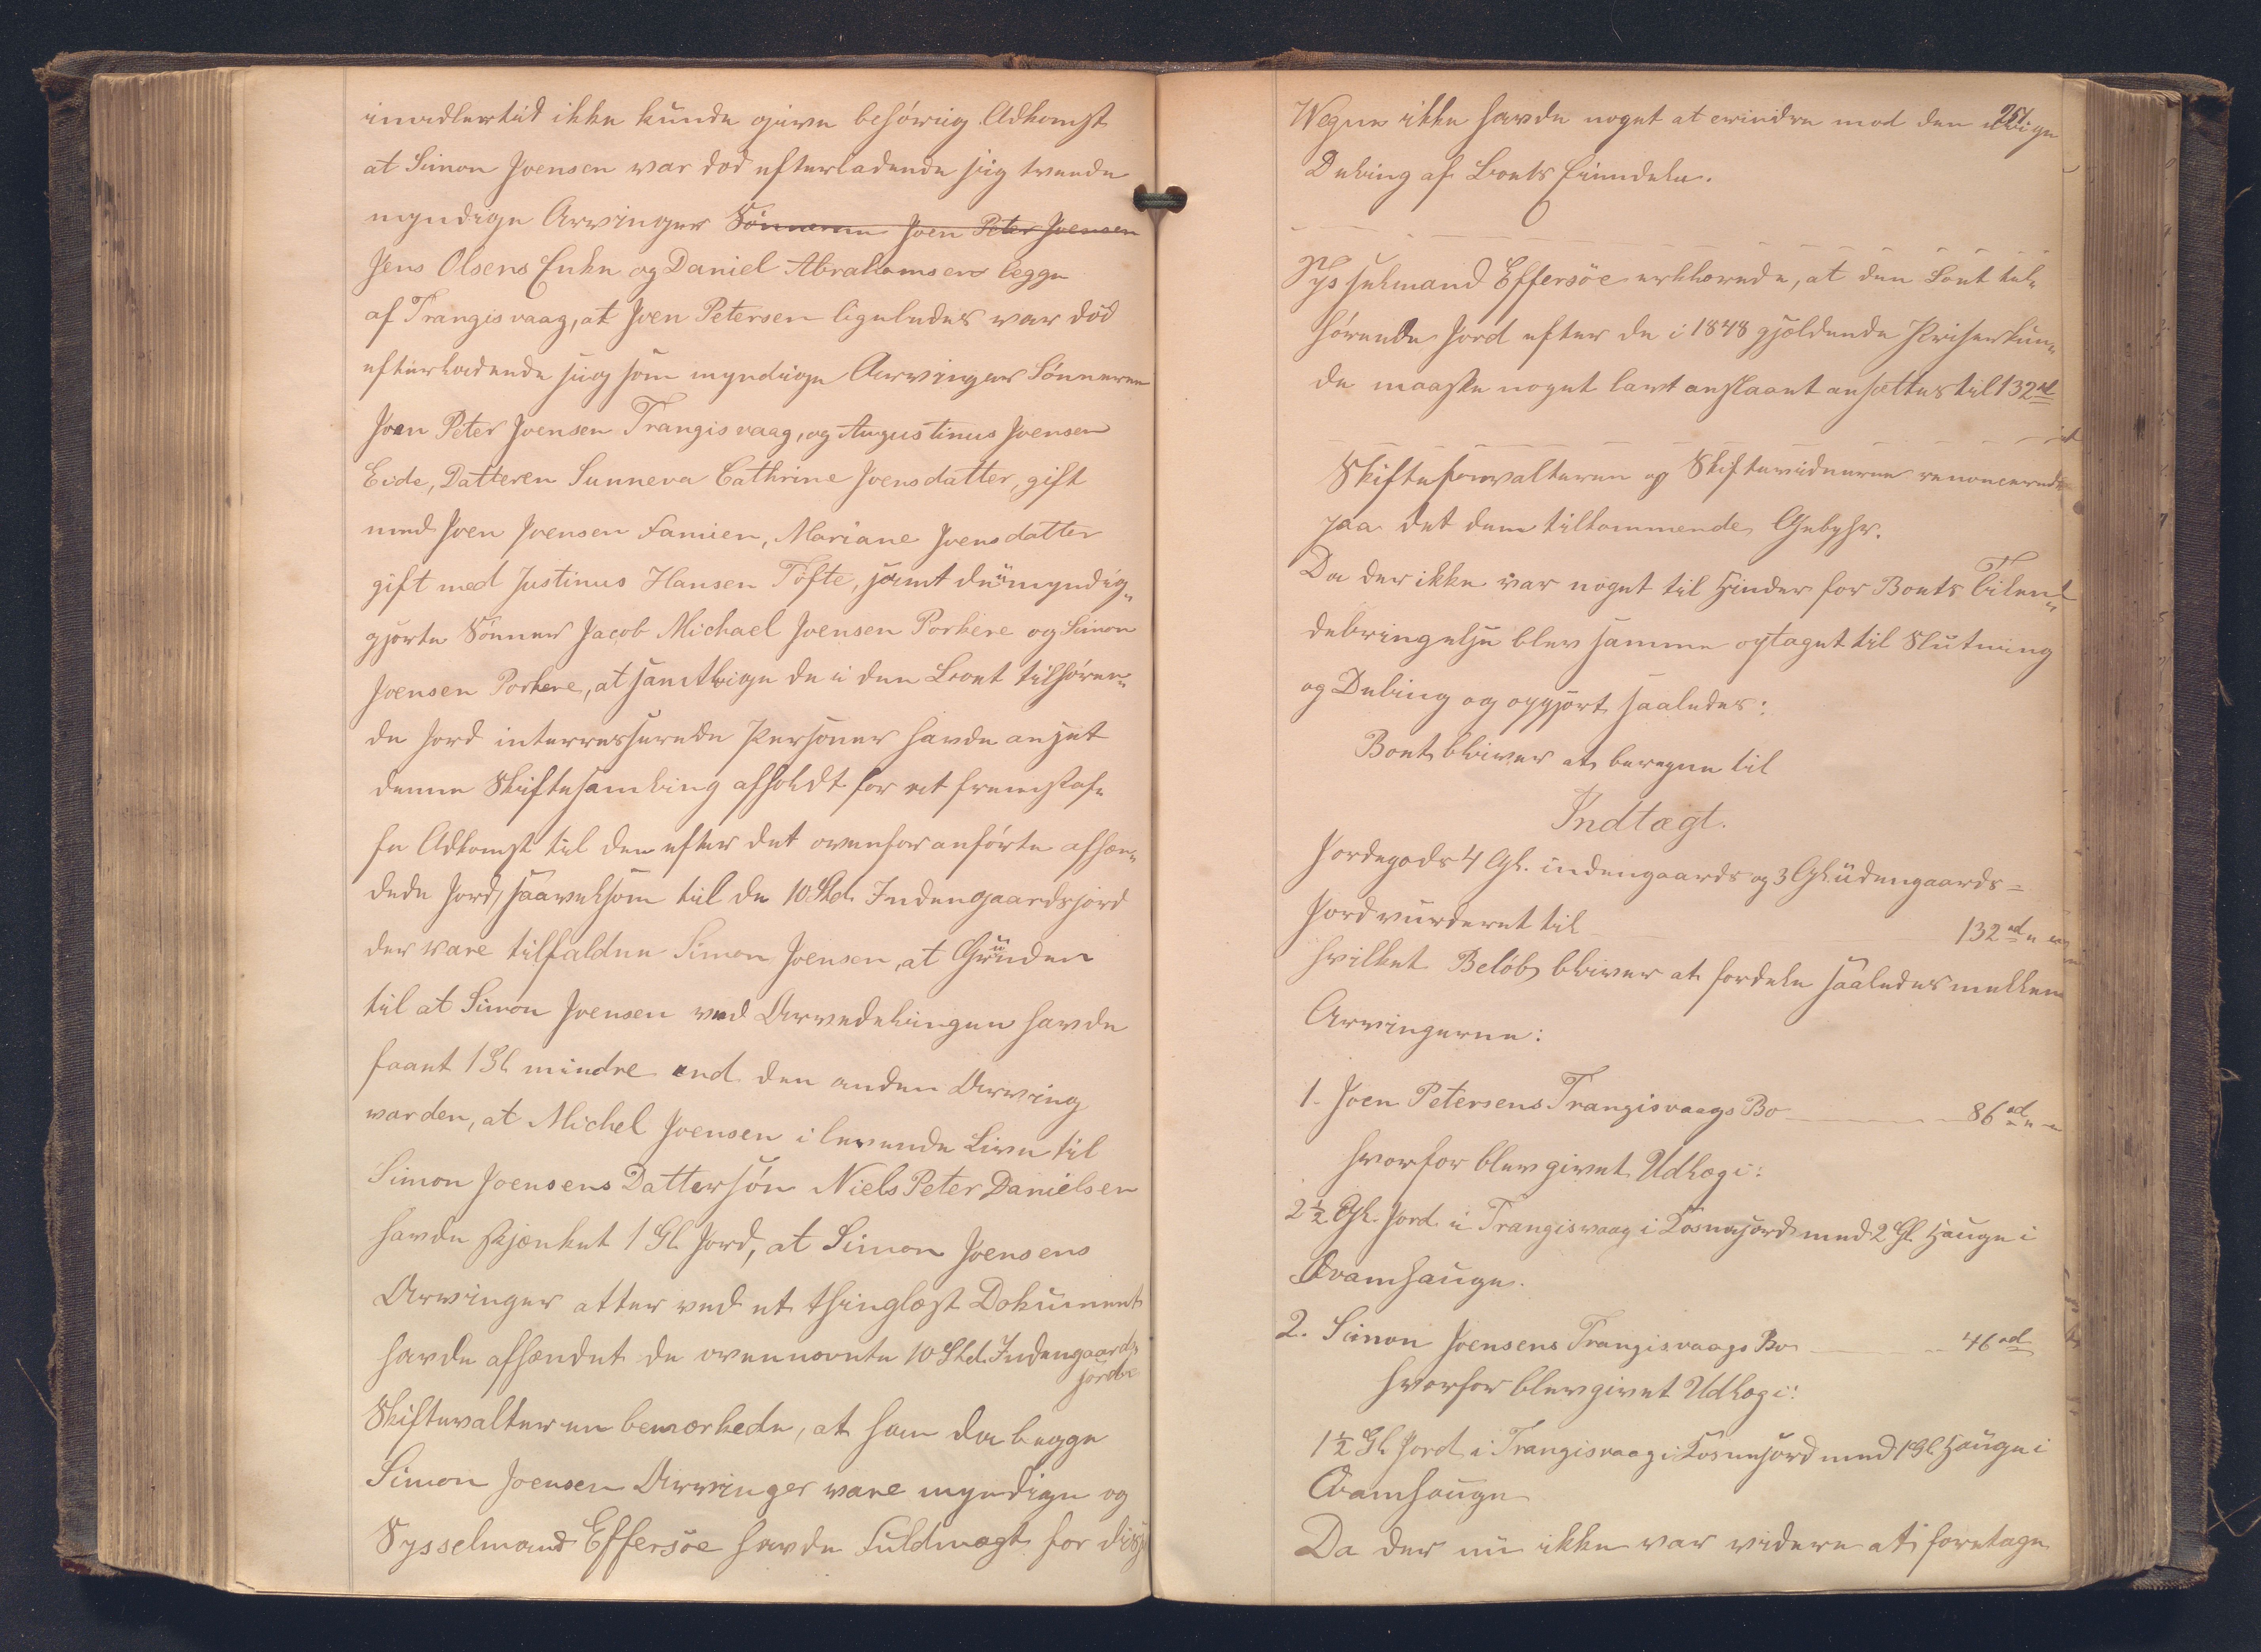 imidlertid ikke kunde give behørig Adkomst
at Simon Joensen var død efterladende sig tvende
myndige Arvinger Sønnerne Joen Peter Joensen
Jens Olsens Enke og Daniel Abrahamsen begge
af Trangisvaag, at Joen Petersen ligeledes var død
efterladende sig som myndige Arvinger Sønnerne
Joen Peter Joensen Trangisvaag, og Augustinus Joensen
Eide, Datteren Sunneva Cathrine Joensdatter, gift
med Joen Joensen Famien, Mariane Joensdatter
gift med Justinus Hansen Töfte, samt de umyndig„
gjorte Sønner Jacob Michael Joensen Porkere og Simon
Joensen Porkere, at samtlige de i den Boet tilhøren„
de Jord interresserede Personer havde ansæt
denne Skiftesamling afholdt for at fremskaf„
fe Adkomst til den efter det ovenfor anførte afhæn„
dede Jord, saavelsom til de 10 Skd. Indengaardsjord
der vare tilfaldne Simon Joensen, at Grunden
til at Simon Joensen ved Arvedelingen havde
faaet 1 Gl mindre end den anden Arving
var den, at Michel Joensen i levende Live til
Simon Joensens Dattersøn Niels Peter Danielsen
havde skjænket 1 Gl. Jord, at Simon Joensens
Arvinger atter ved et thinglæst Dokument
havde afhændet de ovennævnte 10 Skd. Indengaards
jorde
Skifteforvalteren bemærkede, at han da begge
Simon Joensen Arvinger vare myndige og
Sysselmand Effersöe havde Fuldmagt for disses
251
Vegne ikke havde noget at erindre mod den øvrige
Deling af Boets Eiendele.
Sysselmand Effersöe erklærede, at den Boet til„
hørende Jord efter de i 1848 gjældende Priser kun„
de maaske noget lavt anslaaet ansættes til 132 rd
Skifteforvalteren og Skiftevidnerne renoncerede
paa det dem tilkommende Gebyhr.
Da der ikke var noget til Hinder for Boets Tilen„
debringelse blev samme optaget til Slutning
og Deling og opgjort saaledes:
Boet bliver at beregne til
Indtægt.
Jordegods 4 Gl. indengaards og 3 Gl. udengaards=
Jord vurderet til 132 rd „ „
hvilket Beløb bliver at fordele saaledes mellem
Arvingerne:
1. Joen Petersens Trangisvaags Bo 86 rd „ „
hvorfor blev givet Udlæg i:
2 ½ Gl. Jord i Trangisvaag i Kosnajord med 2 Gl. Hauge i
Qvamhauge.
2. Simon Joensens Trangisvaags Bo 46 rd
hvorfor blev givet Udlæg i:
1 ½ Gl. Jord i Trangisvaag i Kosnejord med 1 Gl. Hauge i
Qvamhauge
Da der nu ikke var videre at foretage